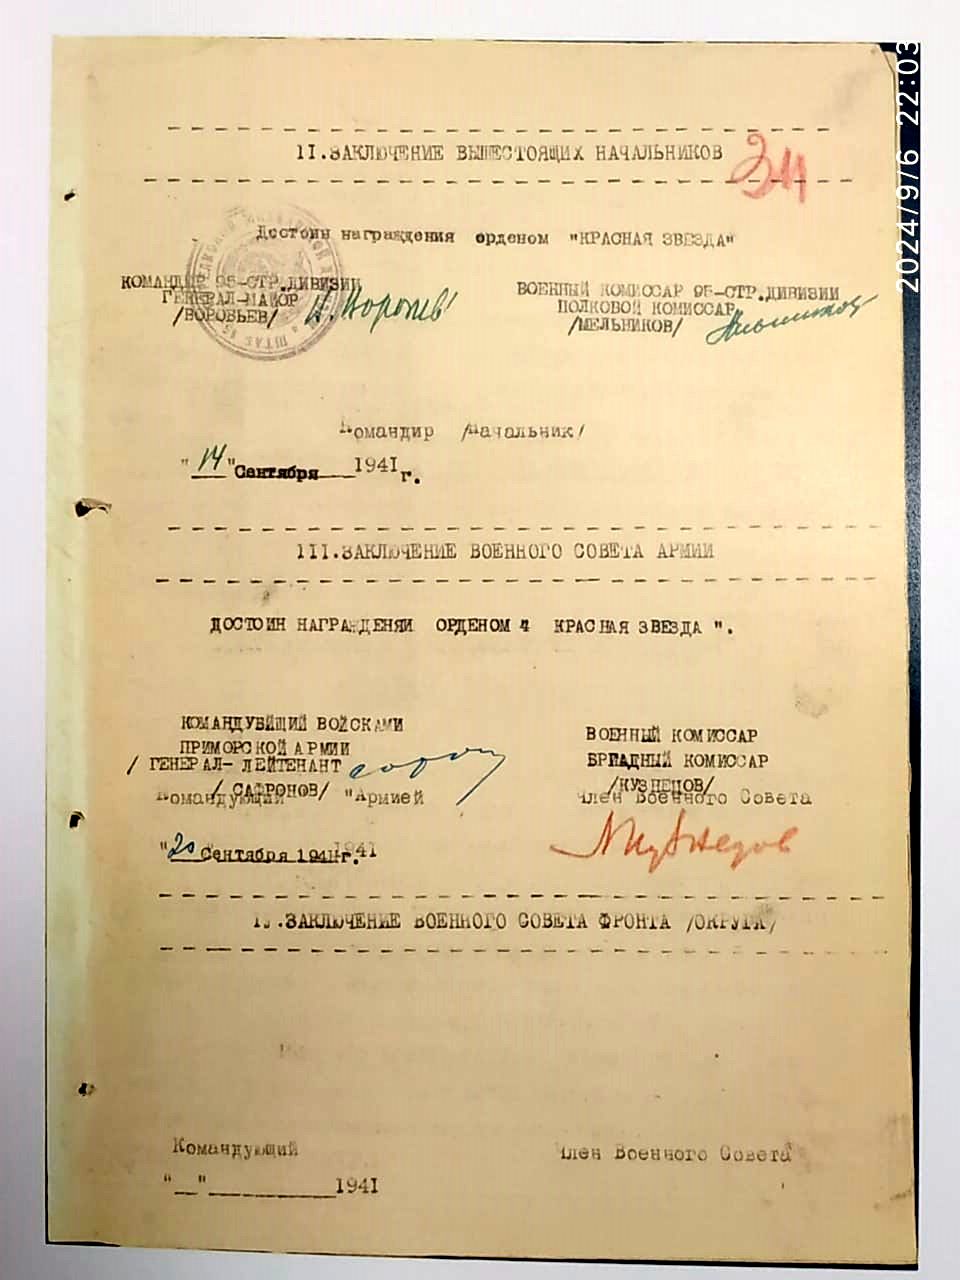 2024/9/6 22:03
II.ЗАКЛЮЧЕНИЕ ВЫШЕСТОЯЩИХ НАЧАЛЬНИКОВ
Достоин награждения орденом "КРАСНАЯ ЗВЕЗДА"
КОМАНДИР 95-СТР.ДИВИЗИИ
ГЕНЕРАЛ-МАЙОР
/ВОРОБЬЕВ/
ВОЕННЫЙ КОМИССАР 95-СТР.ДИВИЗИИ
ПОЛКОВОЙ КОМИССАР
/МЕЛЬНИКОВ/
Командир /Начальник/
"14" Сентября 1941 г.
III.ЗАКЛЮЧЕНИЕ ВОЕННОГО СОВЕТА АРМИИ
ДОСТОИН НАГРАЖДЕНЯИ ОРДЕНОМ 4 КРАСНАЯ ЗВЕЗДА ".
КОМАНДУЮЩИЙ ВОЙСКАМИ
ПРИМОРСКОЙ АРМИИ
/ ГЕНЕРАЛ- ЛЕЙТЕНАНТ
/ САФРОНОВ/
Командующий "Армией
ВОЕННЫЙ КОМИССАР
БРИАДНЫЙ КОМИССАР
/КУЗНЕЦОВ/
Член Военного Совета
Кузнецов
"20" Сентября 1941г. 1941
IV.ЗАКЛЮЧЕНИЕ ВОЕННОГО СОВЕТА ФРОНТА /ОКРУГА/
Командующий
Член Военного Совета
"__"___________1941